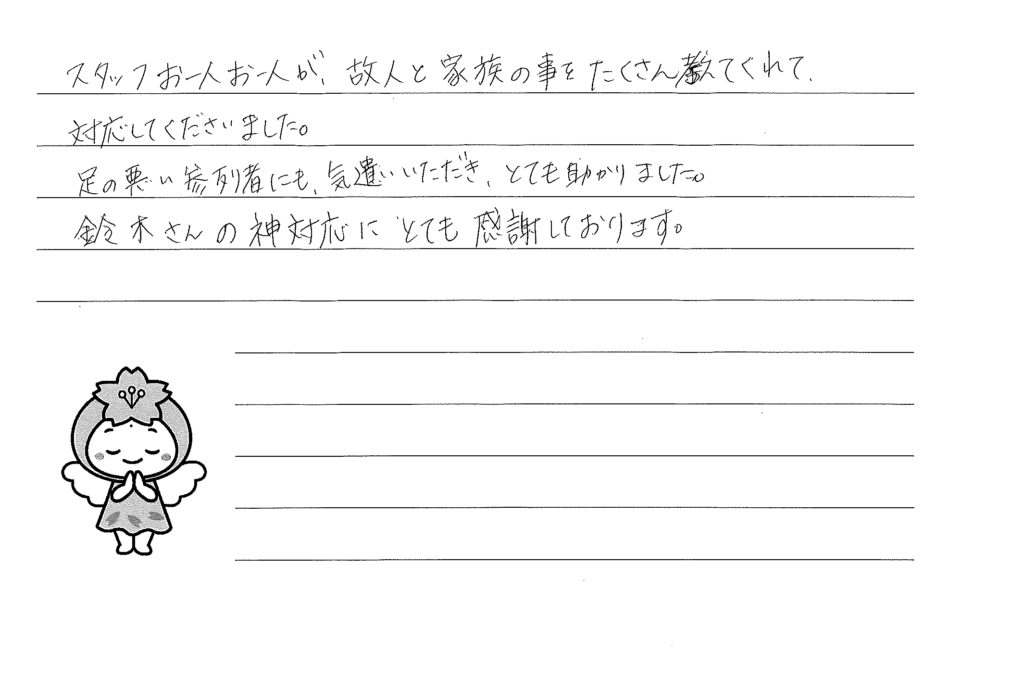 スタッフお一人お一人が、故人と家族の事をたくさん教えてくれて、
対応してくださいました。
足の悪い参列者にも、気遣いいただき、とても助かりました。
鈴木さんの神対応にとても感謝しております。